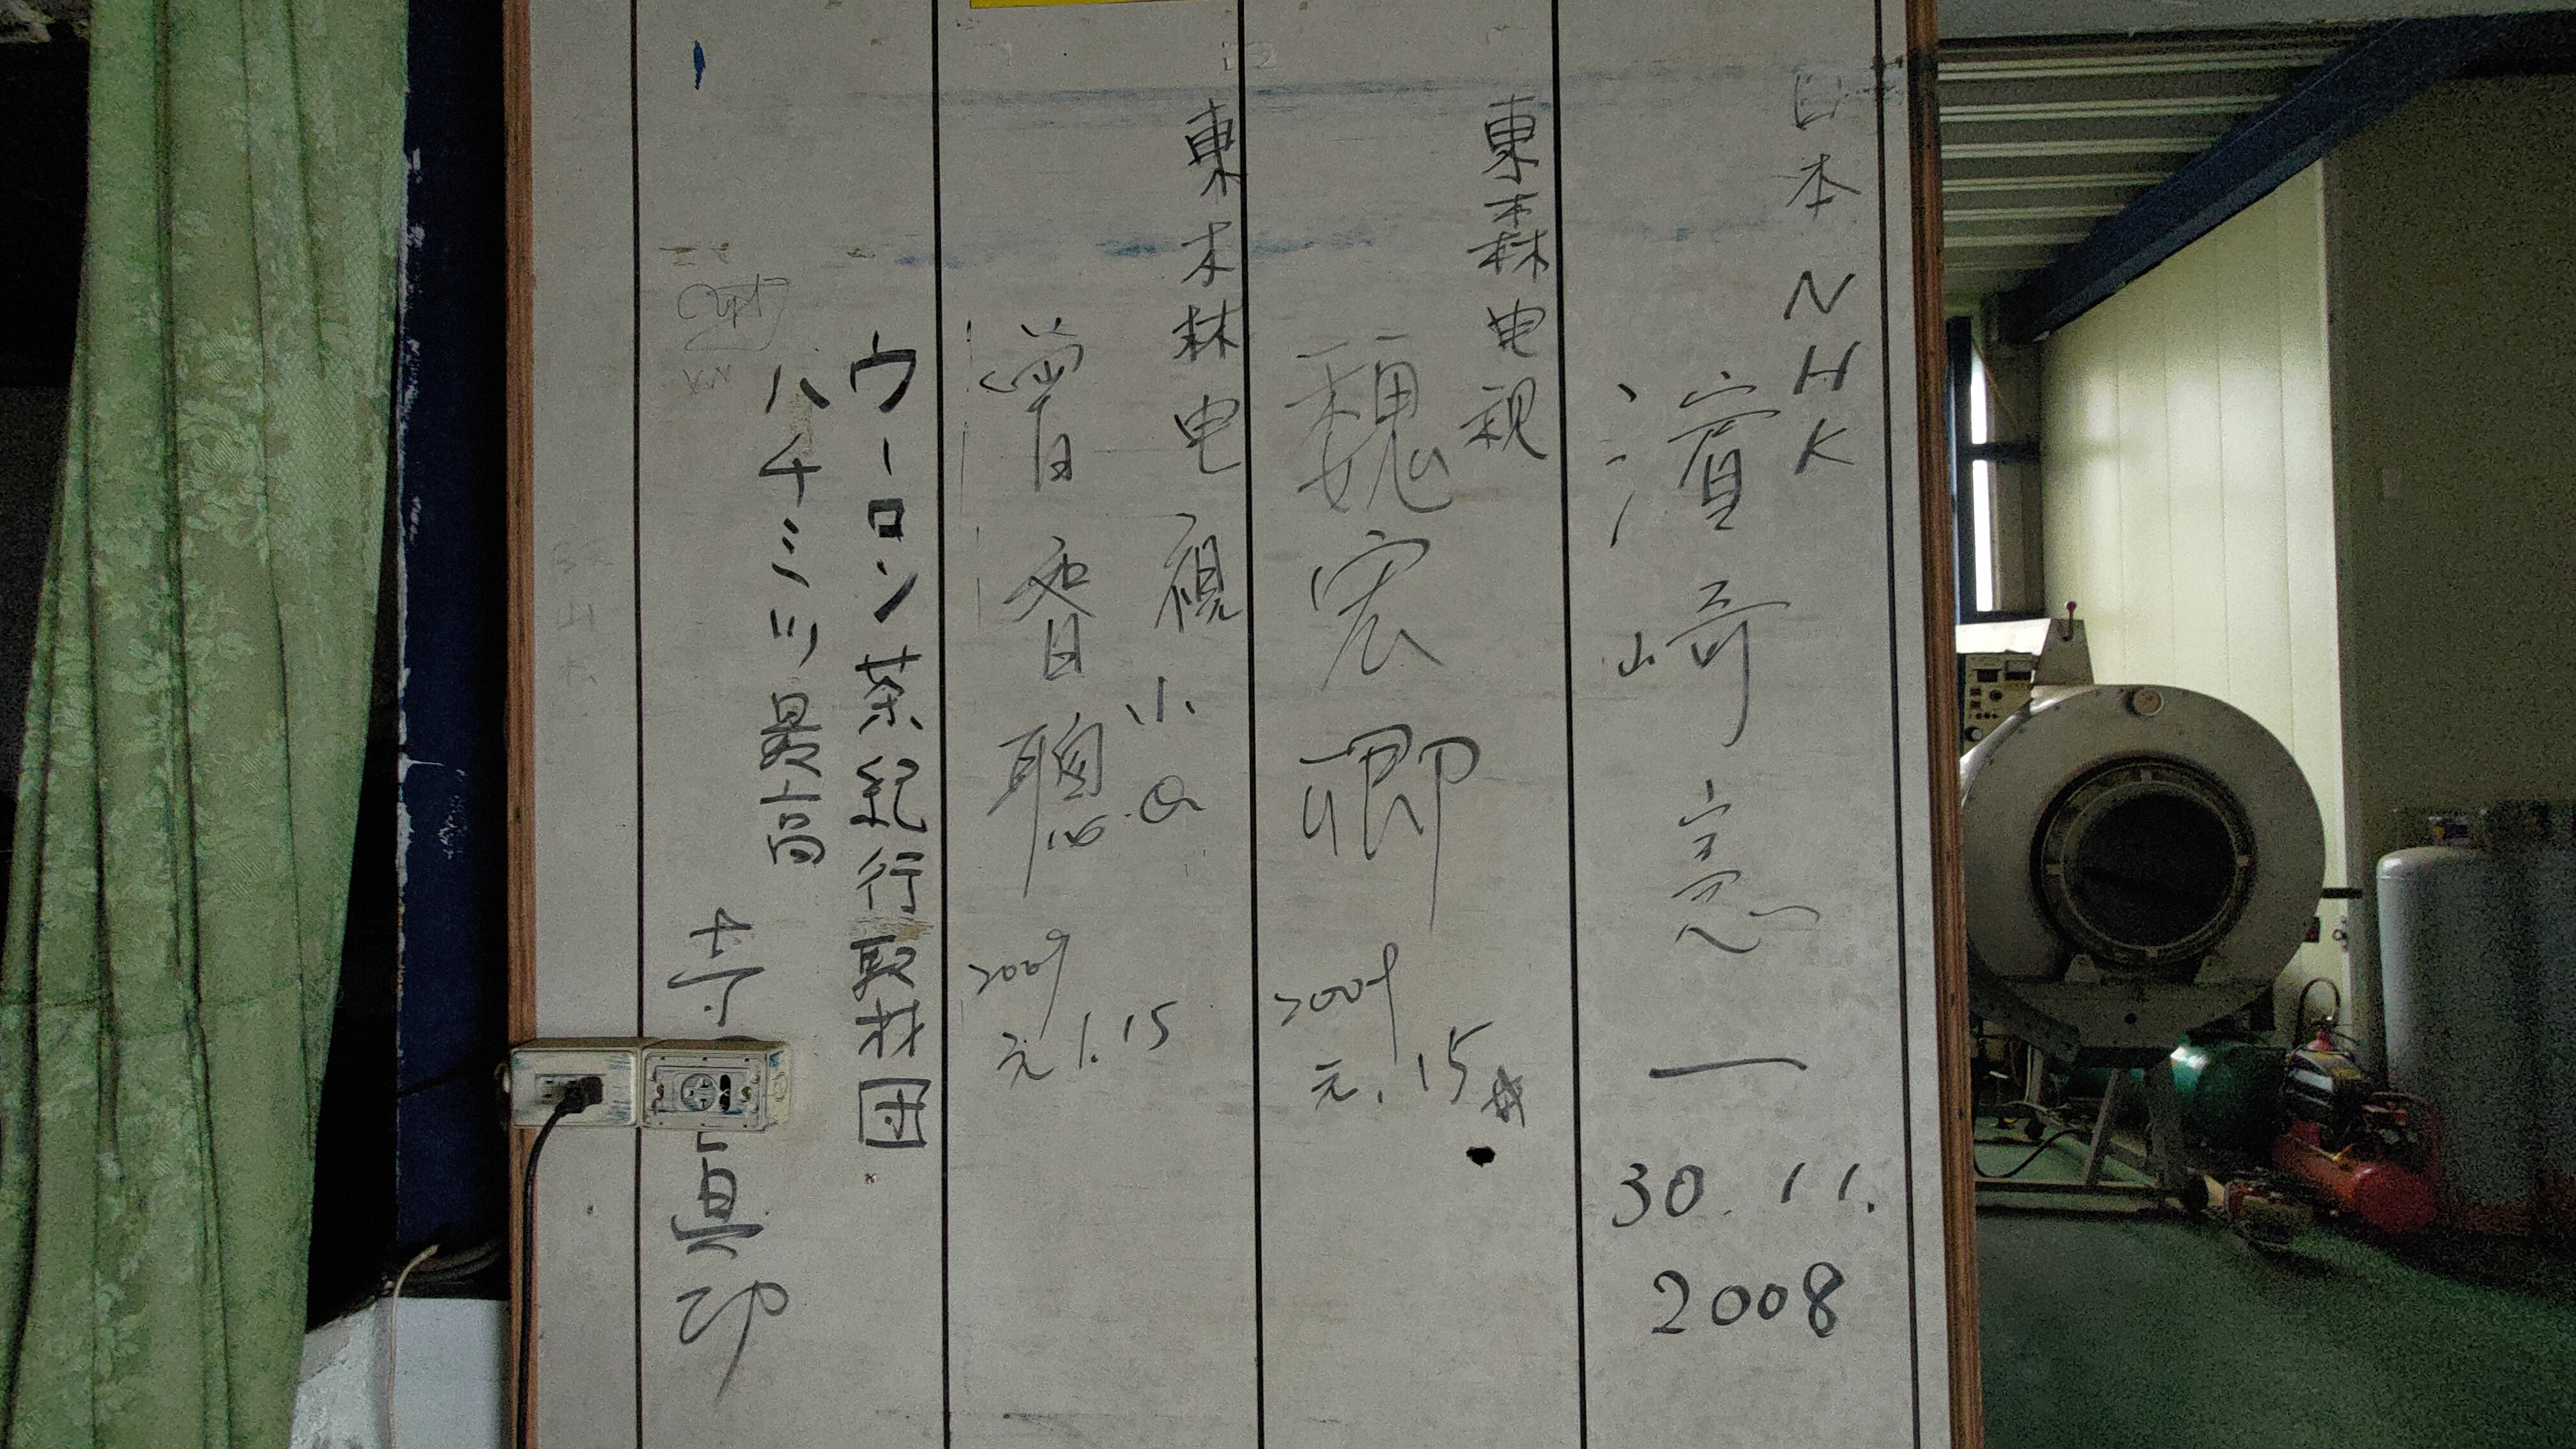 日本 NHK
濱崎憲一
30.11.
2008
東森电視
魏宏卿
2009
元.15
東森电視
小白
曾睿聰
2009
元1.15
ウーロン茶紀行取材団
ハチミツ最高